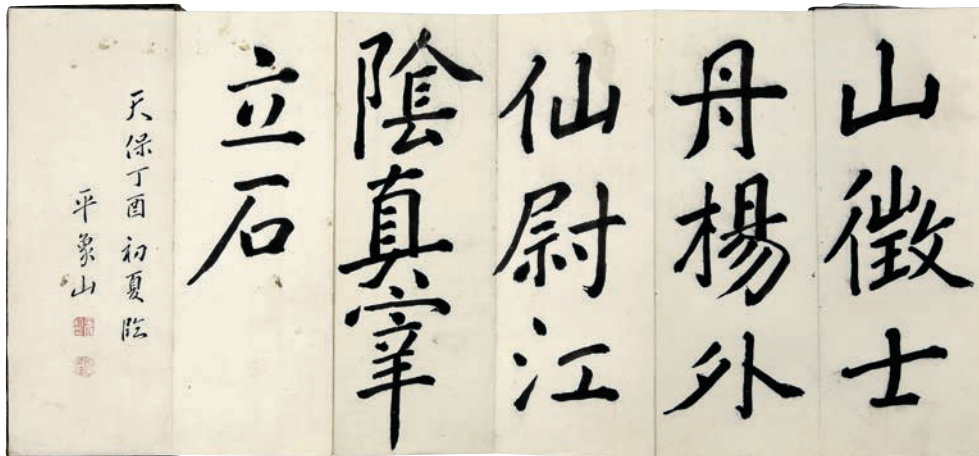 山徴士
丹楊外
仙尉江
陰真宰
立石
天保丁酉初夏臨
平象山